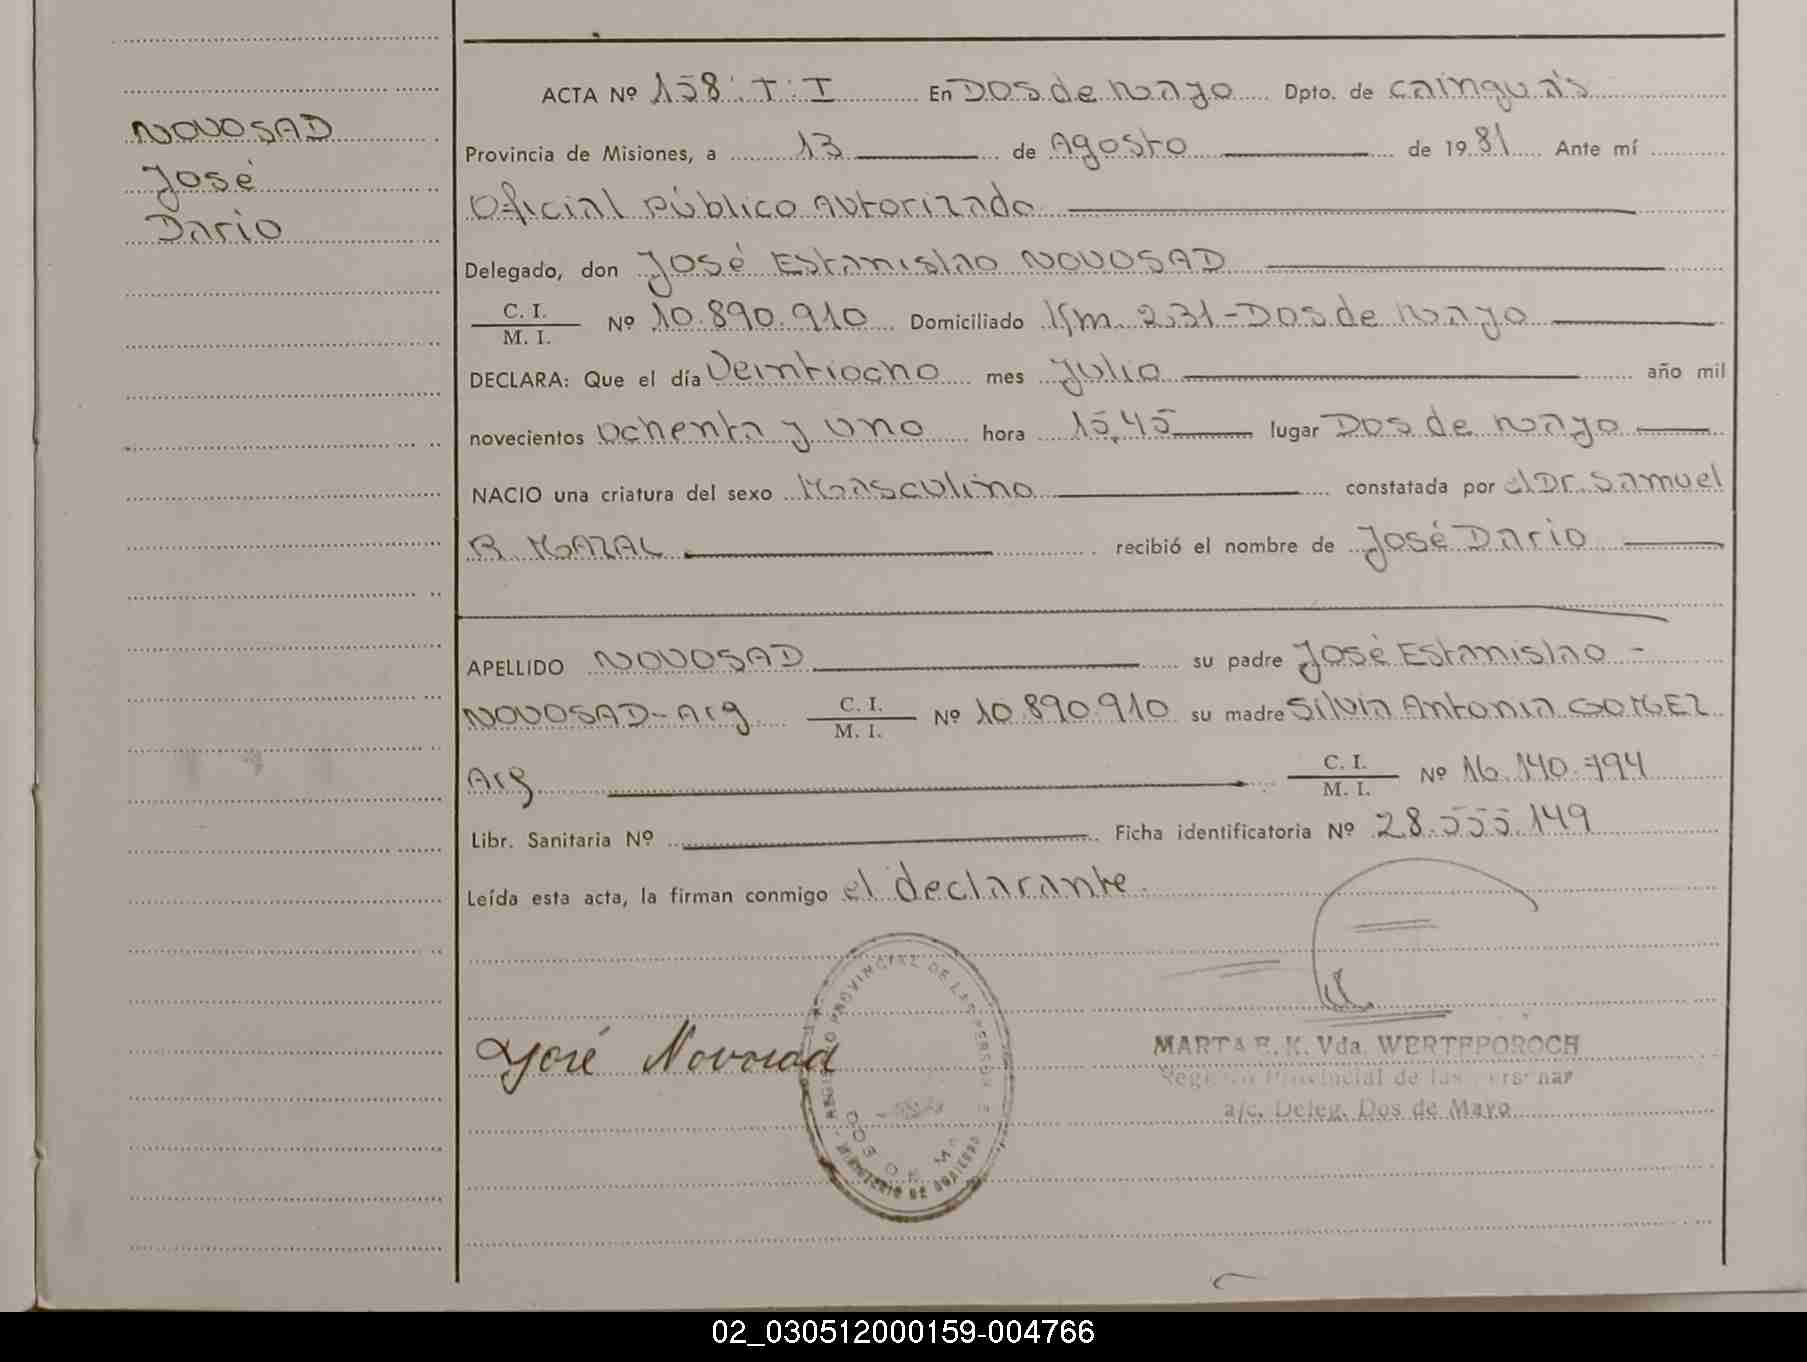 NOVOSAD
José
Dario
ACTA Nº 158: T: I En Dos de Mayo Dpto. de Cainguás
Provincia de Misiones, a 13 de Agosto de 1981 Ante mí
Oficial Público Autorizado
Delegado, don José Estanislao NOVOSAD
C. I.
M. I. Nº 10.890.910 Domiciliado Km. 231-Dos de Mayo
DECLARA: Que el día Veintiocho mes Julio año mil
novecientos Ochenta y uno hora 15,45 lugar Dos de Mayo
NACIO una criatura del sexo Masculino constatada por el Dr. Samuel
R. MAZAL recibió el nombre de José Dario
APELLIDO NOVOSAD su padre José Estanislao -
NOVOSAD-Arg C. I. M. I. Nº 10.890.910 su madre Silvia Antonia GOMEZ
Arg C. I. M. I. Nº 16.140.794
Libr. Sanitaria Nº Ficha identificatoria Nº 28.555.149
Leída esta acta, la firman conmigo el declarante.
José Novosad
REGISTRO PROVINCIAL DE LAS PERSONAS
MINISTERIO DE GOBIERNO
MARTA E. K. Vda. WERTEPOROCH
Registro Provincial de las Personas
a/c. Deleg. Dos de Mayo
02_030512000159-004766